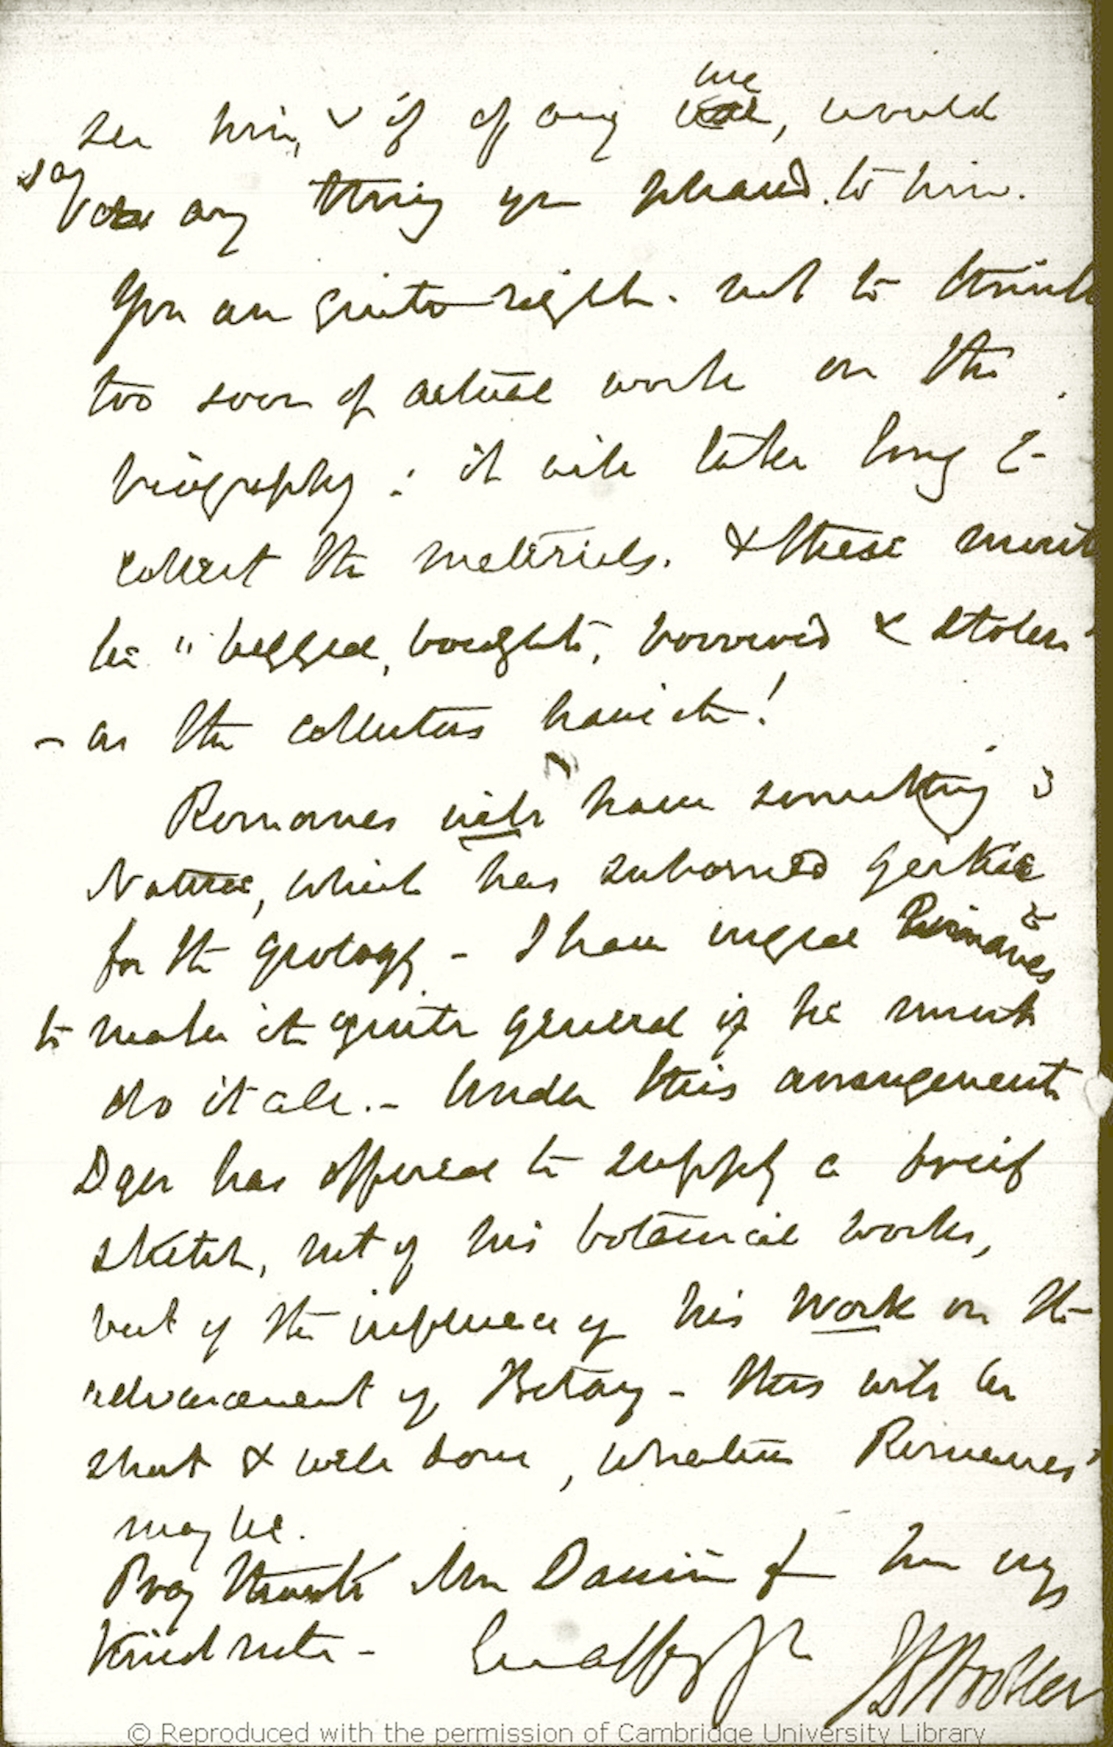 use
see him, & if of any, would
say any thing you pleased to him.
You are quite right not to think
too soon of actual work on the
biography : it will take long to
collect the materials. & these must
be "begged, bought, borrowed & stolen"
– as the collectors have it!
Romanes will have something in
Nature, which has suborned Geikie
for the Geology – I have urged Romanes
to make it quite general if he must
do it all. – Under this arrangement
Dyer has offered to supply a brief
sketch, not of his botanical works,
but of the influence of his work on the
advancement of Botany – this will be
short & well done, whatever Romanes'
may be.
Pray thank Mrs Darwin for her very
kind note –
Ever affy yrs JD Hooker
© Reproduced with the permission of Cambridge University Library